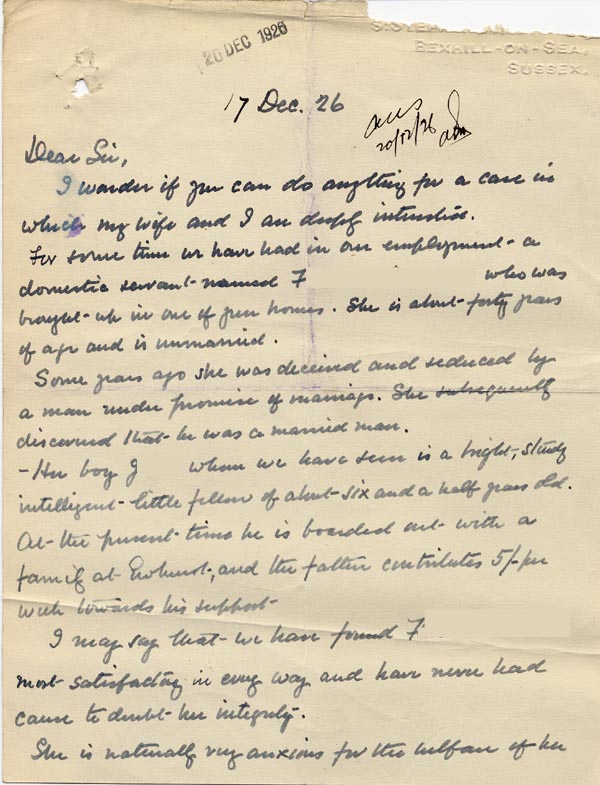 20 DEC 1926
BEXHILL-ON-SEA,
SUSSEX.
17 Dec. 26
20/12/26
Dear Sir,
I wonder if you can do anything for a case in
which my wife and I are deeply interested.
For some time we have had in our employment a
domestic servant named F who was
brought up in one of your homes. She is about forty years
of age and is unmarried.
Some years ago she was deceived and seduced by
a man under promise of marriage. She subsequently
discovered that he was a married man.
- Her boy J whom we have seen is a bright, sturdy
intelligent little fellow of about six and a half years old.
At the present time he is boarded out with a
family at Ewhurst, and the father contributes 5/- per
week towards his support.
I may say that we have found F
most satisfactory in every way and have never had
cause to doubt her integrity.
She is naturally very anxious for the welfare of her